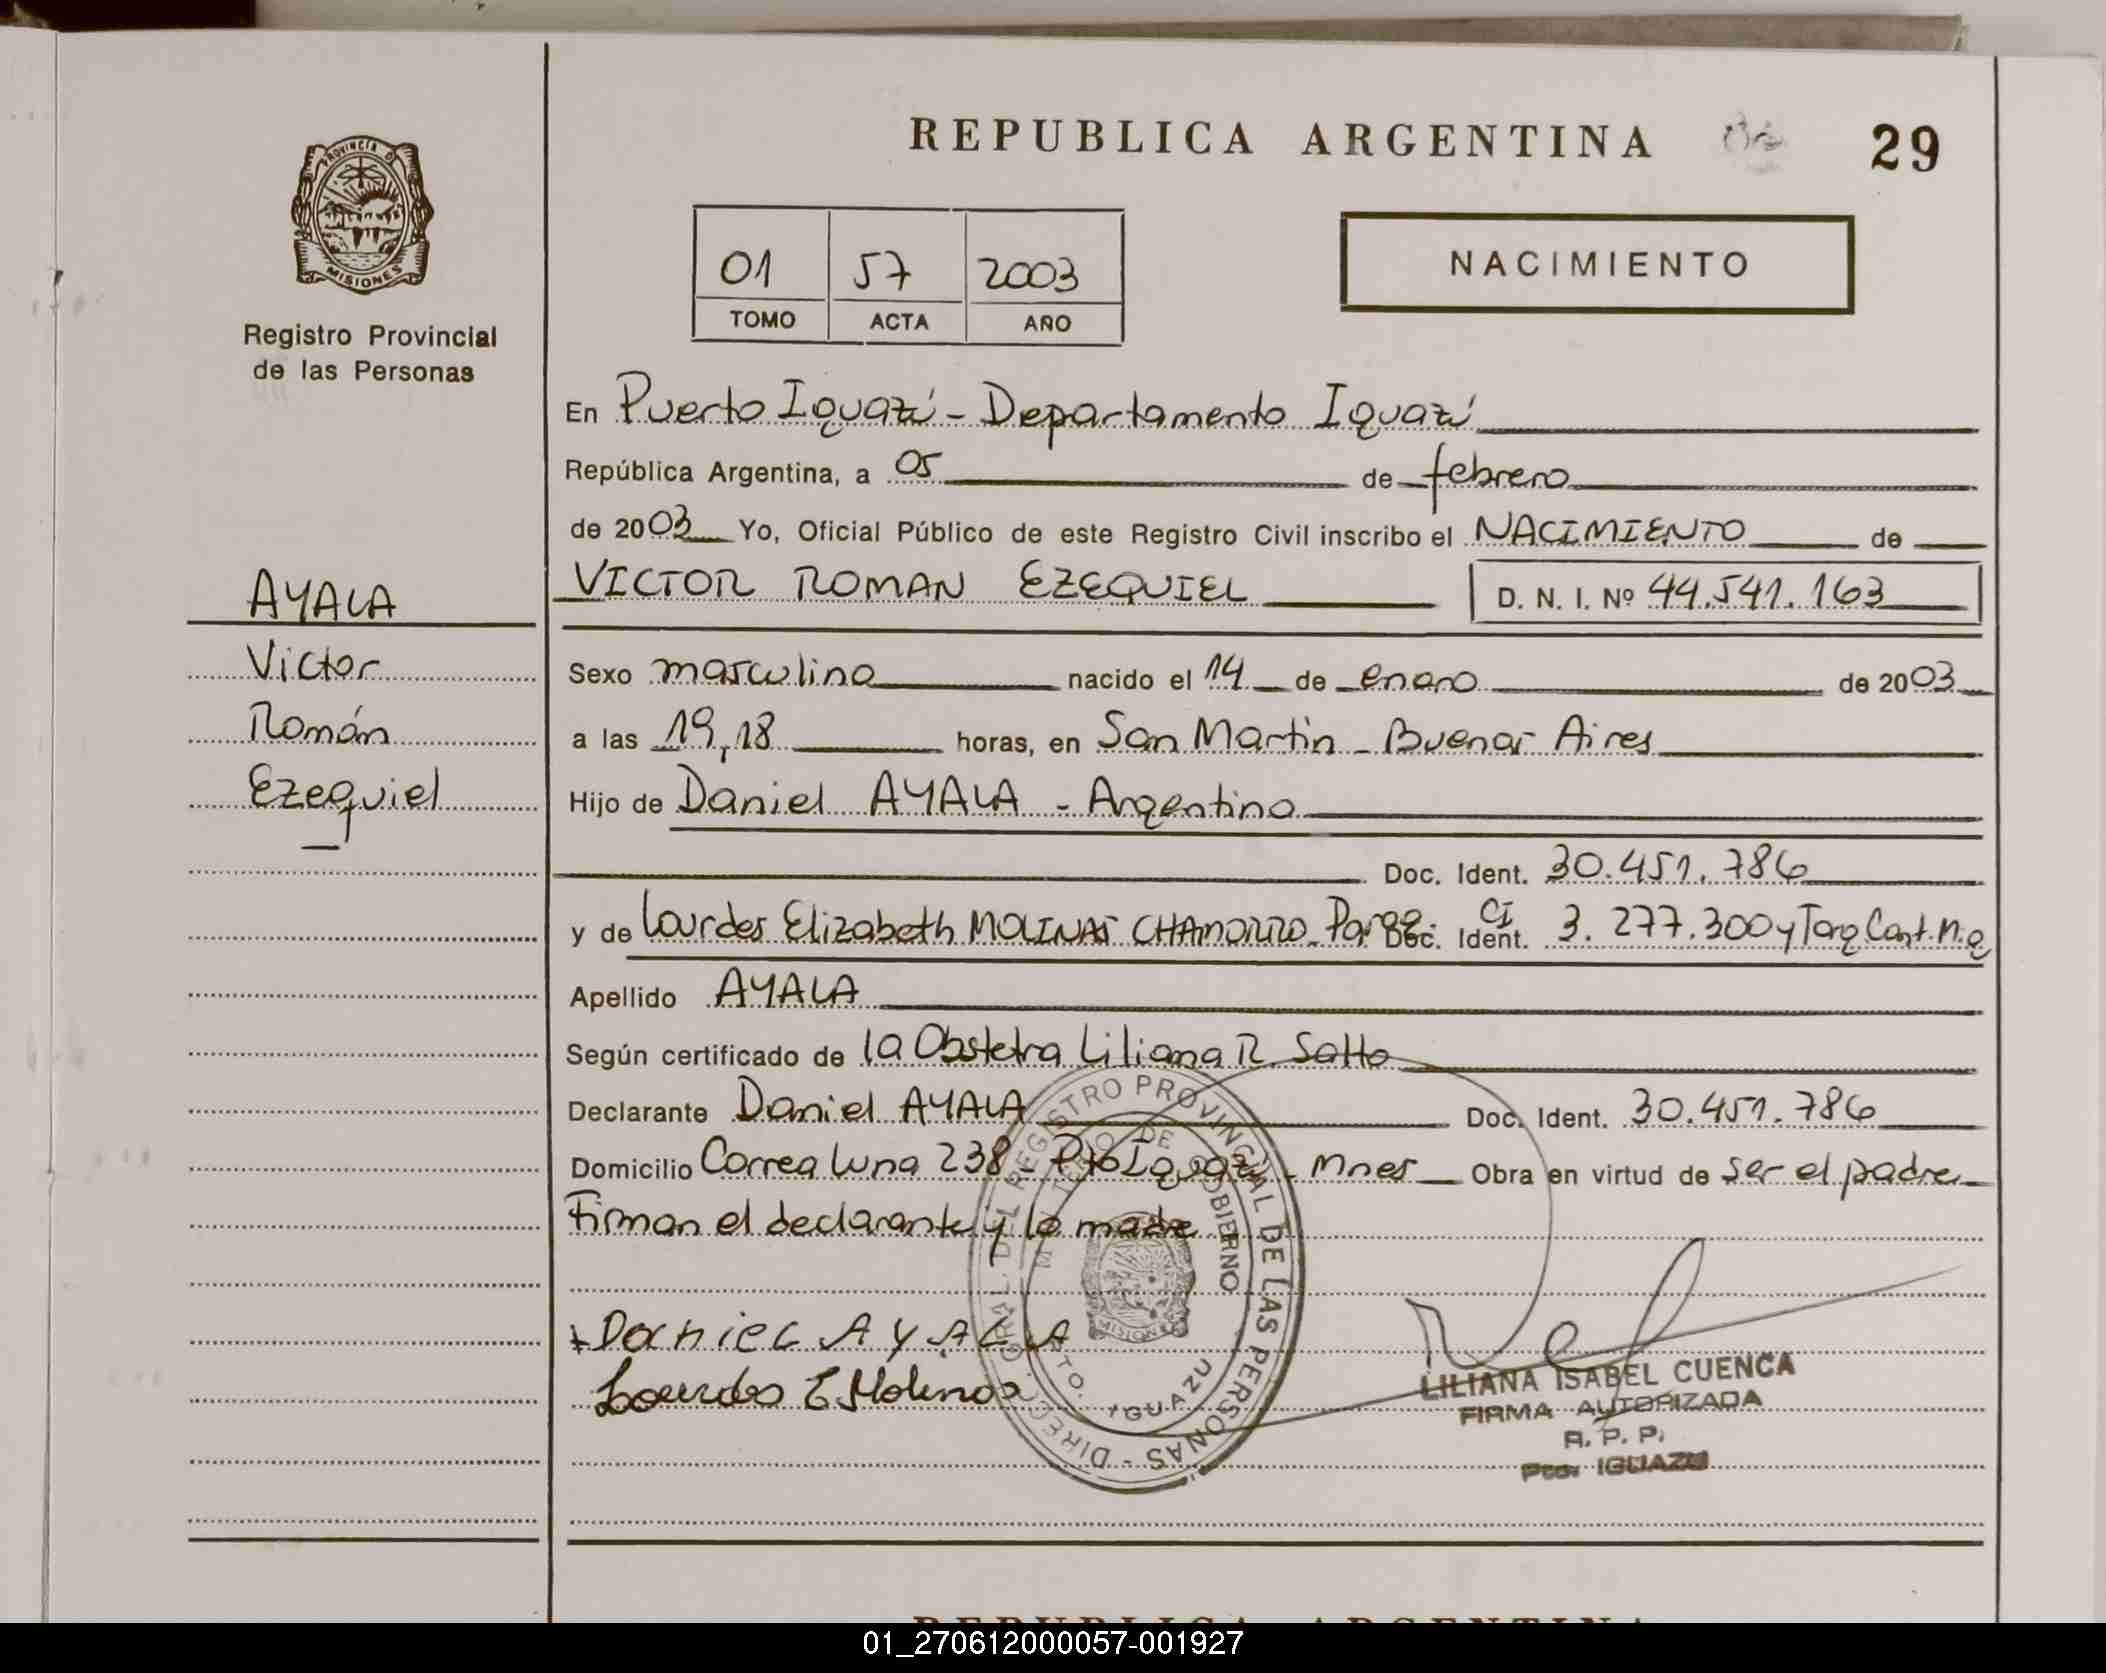 REPUBLICA ARGENTINA
29
PROVINCIA D
MISIONES
Registro Provincial
de las Personas
01 57 2003
TOMO ACTA AÑO
NACIMIENTO
En Puerto Iguazú - Departamento Iguazú
República Argentina, a 05 de febrero
de 2003 Yo, Oficial Público de este Registro Civil inscribo el NACIMIENTO de
VICTOR ROMAN EZEQUIEL D. N. I. Nº 44.541.163
AYALA
Victor
Román
Ezequiel
Sexo masculino nacido el 14 de enero de 2003
a las 19,18 horas, en San Martín - Buenos Aires
Hijo de Daniel AYALA - Argentino
Doc. Ident. 30.451.786
y de Lourdes Elizabeth MOLINAS CHAMORRO - Parag. Doc. Ident. CI 3.277.300 y Tarj. Cart. n.g
Apellido AYALA
Según certificado de la Obstetra Liliana R. Sotto
Declarante Daniel AYALA Doc. Ident. 30.451.786
Domicilio Correa Luna 238 - Pto Iguazú - Mnes Obra en virtud de ser el padre
Firman el declarante y la madre
DIRECC. GRAL. DEL REGISTRO PROVINCIAL DE LAS PERSONAS -
DE GOBIERNO
MISIONES
DTO. IGUAZU
Daniel AYALA
Lourdes E Molinas
LILIANA ISABEL CUENCA
FIRMA AUTORIZADA
R. P. P.
Pto. IGUAZU
REPUBLICA ARGENTINA
01_270612000057-001927